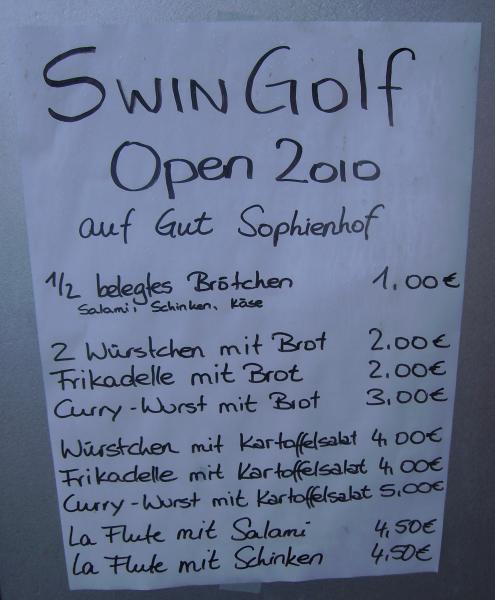 SWINGolf
Open 2010
auf Gut Sophienhof
1/2 belegtes Brötchen 1.00€
Salami, Schinken, Käse
2 Würstchen mit Brot 2.00€
Frikadelle mit Brot 2.00€
Curry-Wurst mit Brot 3,00€
Würstchen mit Kartoffelsalat 4,00€
Frikadelle mit Kartoffelsalat 4,00€
Curry-Wurst mit Kartoffelsalat 5,00€
La Flute mit Salami 4,50€
La Flute mit Schinken 4,50€